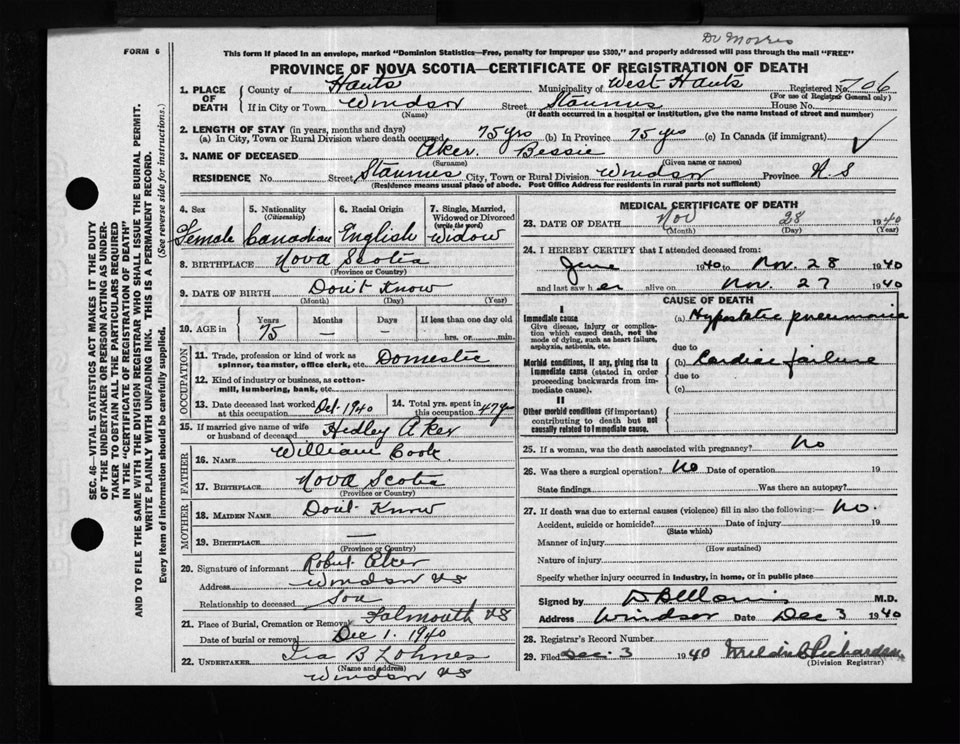 Dr Morris
FORM 6
This form if placed in an envelope, marked "Dominion Statistics—Free, penalty for improper use $300," and properly addressed will pass through the mail "FREE"
PROVINCE OF NOVA SCOTIA—CERTIFICATE OF REGISTRATION OF DEATH
1. PLACE OF DEATH County of Hants Municipality of West Hants Registered No. 706
(For use of Registrar General only)
If in City or Town Windsor Street Stannus House No.
(Name) (If death occurred in a hospital or institution, give the name instead of street and number)
2. LENGTH OF STAY (in years, months and days)
(a) In City, Town or Rural Division where death occurred 75 yrs (b) In Province 75 yrs (c) In Canada (if immigrant)
3. NAME OF DECEASED Aker. Bessie
(Surname) (Given name or names)
RESIDENCE No. Street Stannus City, Town or Rural Division Windsor Province N.S
(Residence means usual place of abode. Post Office Address for residents in rural parts not sufficient)
4. Sex Female
5. Nationality (Citizenship) Canadian
6. Racial Origin English
7. Single, Married, Widowed or Divorced (write the word) Widow
8. BIRTHPLACE Nova Scotia
(Province or Country)
9. DATE OF BIRTH Don't Know
(Month) (Day) (Year)
10. AGE in Years 75 Months — Days — If less than one day old
hrs. or min.
OCCUPATION
11. Trade, profession or kind of work as spinner, teamster, office clerk, etc. Domestic
12. Kind of industry or business, as cotton-mill, lumbering, bank, etc.
13. Date deceased last worked at this occupation Oct. 1940 14. Total yrs. spent in this occupation 47 yrs
15. If married give name of wife or husband of deceased Hedley Aker
FATHER
16. NAME William Cook
17. BIRTHPLACE Nova Scotia
(Province or Country)
MOTHER
18. MAIDEN NAME Don't Know
19. BIRTHPLACE —
(Province or Country)
20. Signature of informant Robert Aker
Address Windsor NS
Relationship to deceased Son
21. Place of Burial, Cremation or Removal Falmouth NS
Date of burial or removal Dec 1. 1940
22. UNDERTAKER Ira B Lohnes
(Name and address)
Windsor NS
MEDICAL CERTIFICATE OF DEATH
23. DATE OF DEATH Nov 28 1940
(Month) (Day) (Year)
24. I HEREBY CERTIFY that I attended deceased from:
June 1940 to Nov. 28 1940
and last saw her alive on Nov. 27 1940
CAUSE OF DEATH
I
Immediate cause (a) Hypostatic pneumonia
Give disease, injury or complication which caused death, not the mode of dying, such as heart failure, asphyxia, asthenia, etc.
due to
Morbid conditions, if any, giving rise to immediate cause (stated in order proceeding backwards from immediate cause). (b) Cardiac failure
due to
(c)
II
Other morbid conditions (if important) contributing to death but not causally related to immediate cause.
25. If a woman, was the death associated with pregnancy? No
26. Was there a surgical operation? No Date of operation 19
State findings Was there an autopsy?
27. If death was due to external causes (violence) fill in also the following:— No.
Accident, suicide or homicide? Date of injury 19
(State which)
Manner of injury
(How sustained)
Nature of injury
Specify whether injury occurred in industry, in home, or in public place
Signed by M.D.
Address Windsor Date Dec 3 1940
28. Registrar's Record Number
29. Filed Dec. 3 1940 Richardson
(Division Registrar)
SEC. 46—VITAL STATISTICS ACT MAKES IT THE DUTY
OF THE UNDERTAKER OR PERSON ACTING AS UNDER-
TAKER TO OBTAIN ALL THE PARTICULARS REQUIRED
IN THE "CERTIFICATE OF REGISTRATION OF DEATH"
AND TO FILE THE SAME WITH THE DIVISION REGISTRAR WHO SHALL ISSUE THE BURIAL PERMIT.
WRITE PLAINLY WITH UNFADING INK. THIS IS A PERMANENT RECORD.
Every item of information should be carefully supplied. (See reverse side for instructions.)